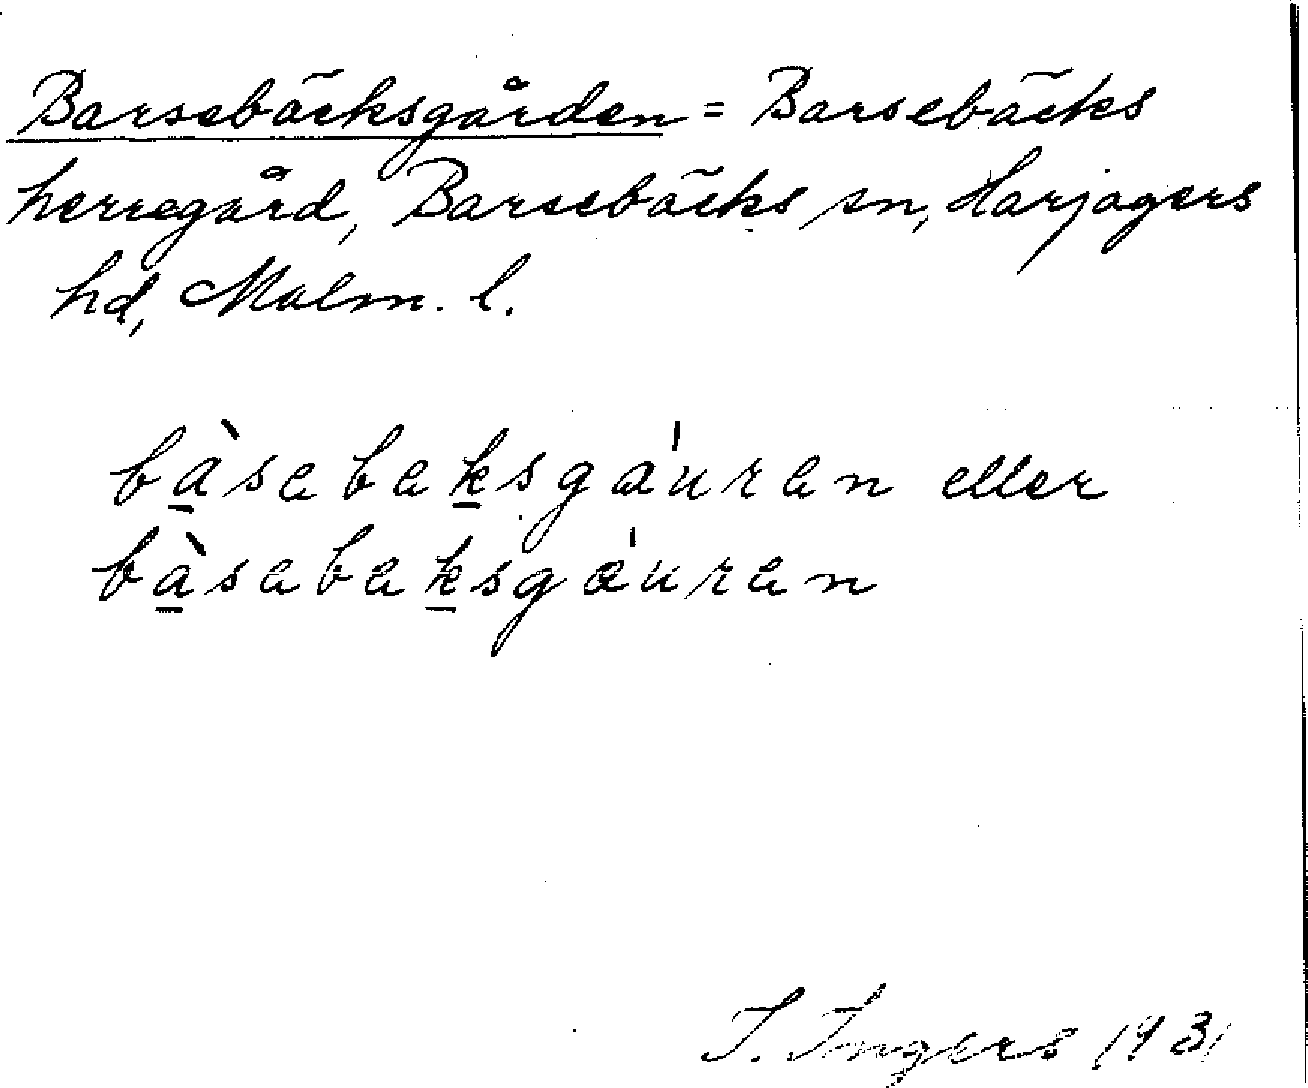 Barsebäcksgården = Barsebäcks
herregård, Barsebäcks sn, Harjagers
hd, Malm. l.
bàsebeksgáuren eller
bàsebeksgǽuren
I. Ingers 1931